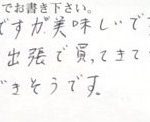 でお書き下さい。
ですが美味しいです
出張で買ってきて
できそうです。